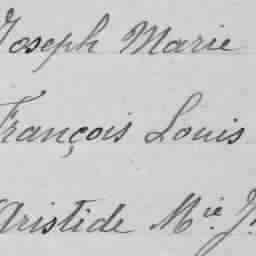 Joseph Marie
François Louis
Aristide Mie J